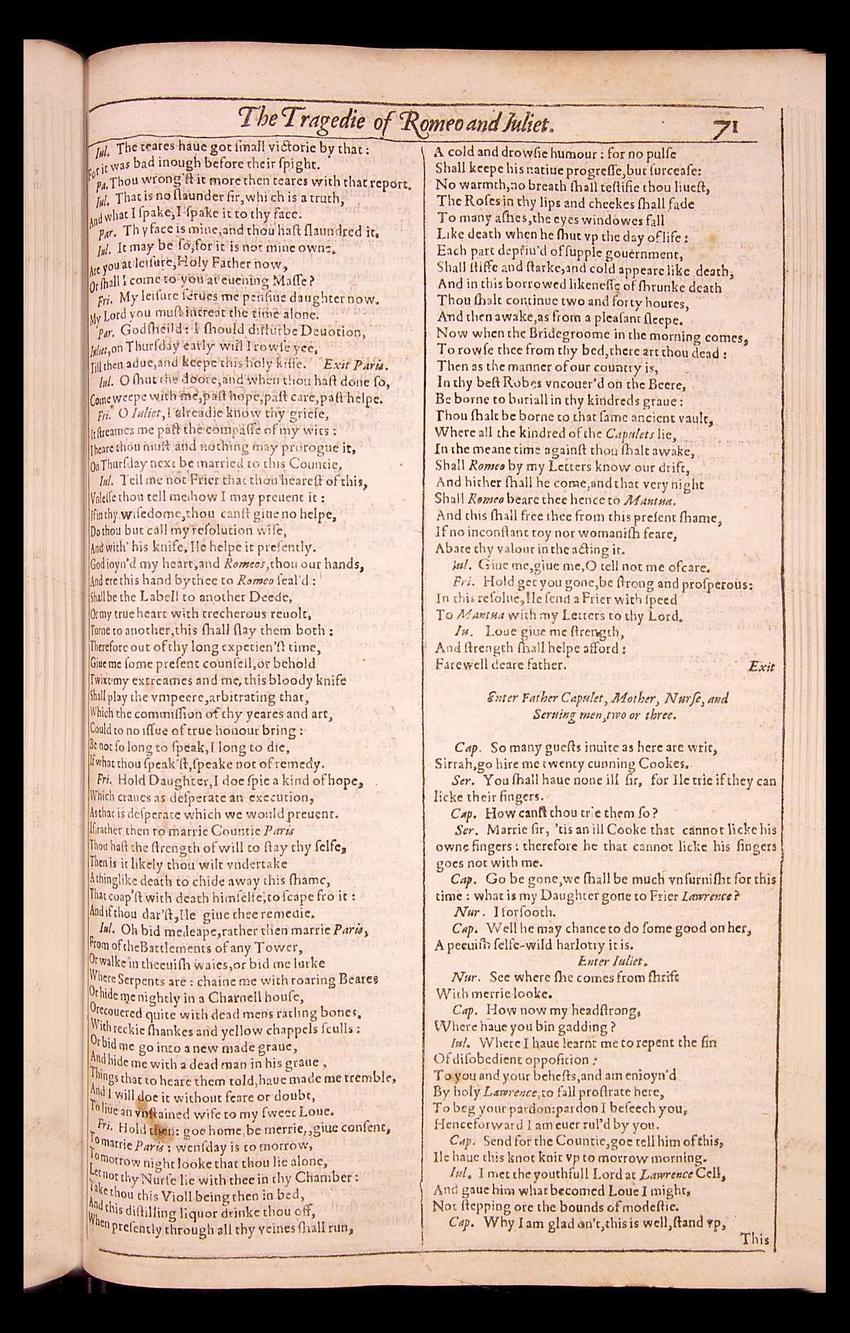 The Tragedie of Romeo and Iuliet. 71
Iul. The teares haue got small victorie by that:
For it was bad inough before their spight.
Pa. Thou wrong'st it more then teares with that report.
Iul. That is no slaunder sir, which is a truth,
And what I spake, I spake it to thy face.
Par. Thy face is mine, and thou hast slaundred it.
Iul. It may be so, for it is not mine owne.
Are you at leisure, Holy Father now,
Or shall I come to you at euening Masse?
Fri. My leisure serues me pensiue daughter now.
My Lord you must intreat the time alone.
Par. Godsheild: I should disturbe Deuotion,
Iuliet, on Thursday early will I rowse yee,
Till then adue, and keepe this holy kisse. Exit Paris.
Iul. O shut the doore, and when thou hast done so,
Come weepe with me, past hope, past care, past helpe.
Fri. O Iuliet, I alreadie know thy griefe,
It streames me past the compasse of my wits:
I heare thou must and nothing may prorogue it,
On Thursday next be married to this Countie,
Iul. Tell me not Frier that thou hearest of this,
Vnlesse thou tell me how I may preuent it:
If in thy wisedome, thou canst giue no helpe,
Do thou but call my resolution wise,
And with' his knife, Ile helpe it presently.
God ioyn'd my heart, and Romeos, thou our hands,
And ere this hand by thee to Romeo seal'd:
Shall be the Labell to another Deede,
Or my true heart with trecherous reuolt,
Turne to another, this shall slay them both:
Therefore out of thy long expetien'st time,
Giue me some present counsell, or behold
Twixt my extreames and me, this bloody knife
Shall play the vmpeere, arbitrating that,
Which the commission of thy yeares and art,
Could to no issue of true honour bring:
Be not so long to speak, I long to die,
If what thou speak'st, speake not of remedy.
Fri. Hold Daughter, I doe spie a kind of hope,
Which craues as desperate an execution,
As that is desperate which we would preuent.
If rather then to marrie Countie Paris
Thou hast the strength of will to stay thy selfe,
Then is it likely thou wilt vndertake
A thing like death to chide away this shame,
That coap'st with death himselfe, to scape fro it:
And if thou dar'st, Ile giue thee remedie.
Iul. Oh bid me leape, rather then marrie Paris,
From of the Battlements of any Tower,
Or walke in theeuish waies, or bid me lurke
Where Serpents are: chaine me with roaring Beares
Or hide me nightly in a Charnell house,
Orecouered quite with dead mens ratling bones,
With reckie shankes and yellow chappels sculls:
Or bid me go into a new made graue,
And hide me with a dead man in his graue,
Things that to heare them told, haue made me tremble,
And I will doe it without feare or doubt,
To liue an vnstained wife to my sweet Loue.
Fri. Hold then: goe home, be merrie,, giue consent,
To marrie Paris: wensday is to morrow,
To morrow night looke that thou lie alone,
Let not thy Nurse lie with thee in thy Chamber:
Take thou this Violl being then in bed,
And this distilling liquor drinke thou off,
When presently through all thy veines shall run,
A cold and drowsie humour: for no pulse
Shall keepe his natiue progresse, but surcease:
No warmth, no breath shall testifie thou liuest,
The Roses in thy lips and cheekes shall fade
To many ashes, the eyes windowes fall
Like death when he shut vp the day of life:
Each part depriu'd of supple gouernment,
Shall stiffe and starke, and cold appeare like death,
And in this borrowed likenesse of shrunke death
Thou shalt continue two and forty houres,
And then awake, as from a pleasant sleepe.
Now when the Bridegroome in the morning comes,
To rowse thee from thy bed, there art thou dead:
Then as the manner of our country is,
In thy best Robes vncouer'd on the Beere,
Be borne to buriall in thy kindreds graue:
Thou shalt be borne to that same ancient vault,
Where all the kindred of the Capulets lie,
In the meane time against thou shalt awake,
Shall Romeo by my Letters know our drift,
And hither shall he come, and that very night
Shall Romeo beare thee hence to Mantua.
And this shall free thee from this present shame,
If no inconstant toy nor womanish feare,
Abate thy valour in the acting it.
Iul. Giue me, giue me, O tell not me of care.
Fri. Hold get you gone, be strong and prosperous:
In this resolue, Ile send a Frier with speed
To Mantua with my Letters to thy Lord.
Iu. Loue giue me strength,
And strength shall helpe afford:
Farewell deare father. Exit
Enter Father Capulet, Mother, Nurse, and
Seruing men, two or three.
Cap. So many guests inuite as here are writ,
Sirrah, go hire me twenty cunning Cookes.
Ser. You shall haue none ill sir, for Ile trie if they can
licke their fingers.
Cap. How canst thou trie them so?
Ser. Marrie sir, 'tis an ill Cooke that cannot licke his
owne fingers: therefore he that cannot licke his fingers
goes not with me.
Cap. Go be gone, we shall be much vnfurnisht for this
time: what is my Daughter gone to Frier Lawrence?
Nur. I forsooth.
Cap. Well he may chance to do some good on her,
A peeuish selfe-wild harlotry it is.
Enter Iuliet.
Nur. See where she comes from shrift
With merrie looke.
Cap. How now my headstrong,
Where haue you bin gadding?
Iul. Where I haue learnt me to repent the sin
Of disobedient opposition:
To you and your behests, and am enioyn'd
By holy Lawrence, to fall prostrate here,
To beg your pardon: pardon I beseech you,
Henceforward I am euer rul'd by you.
Cap. Send for the Countie, goe tell him of this,
Ile haue this knot knit vp to morrow morning.
Iul. I met the youthfull Lord at Lawrence Cell,
And gaue him what becomed Loue I might,
Not stepping ore the bounds of modestie.
Cap. Why I am glad on't, this is well, stand vp,
This